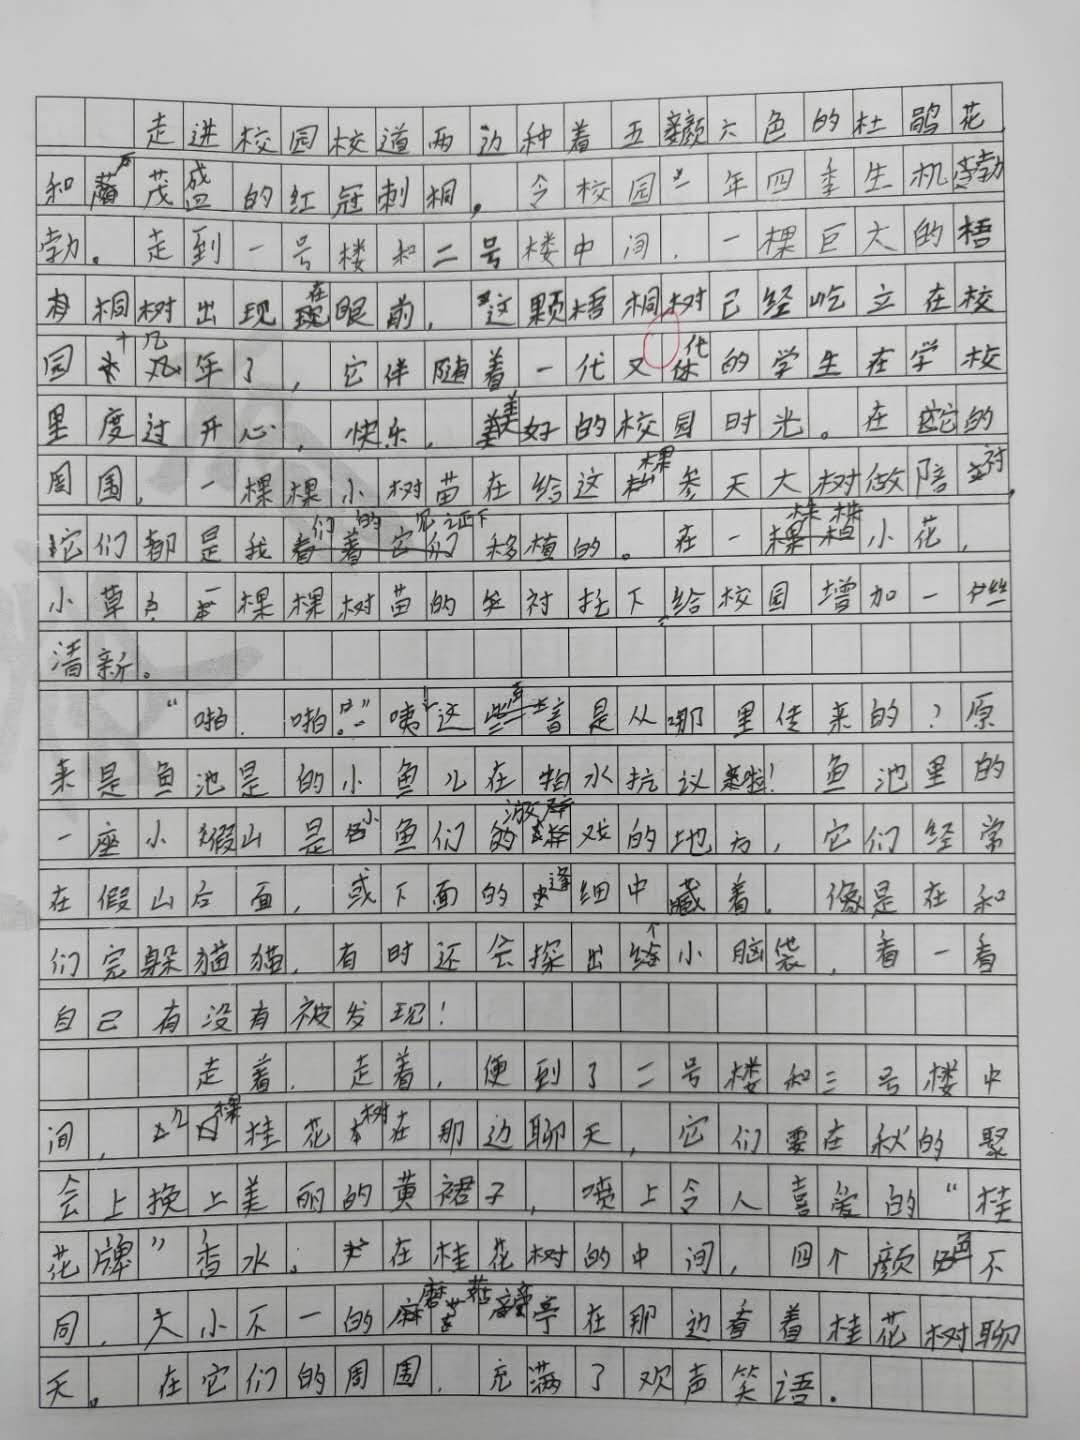 走进校园校道两边种着五颜六色的杜鹃花,
和茂盛的红冠刺桐。令校园一年四季生机勃
勃。走到一号楼和二号楼中间,一棵巨大的梧
桐树出现在眼前,这颗梧桐树已经屹立在校
园十几年了,它伴随着一代又一代的学生在学校
里度过开心,快乐,美好的校园时光。在它的
周围,一棵棵小树苗在给这棵参天大树做陪衬,
它们都是我们的见证下移植的。在一株株小花,
小草,一棵棵树苗的衬托下,给校园增加一丝
清新。
“啪,啪。”咦!这声音是从哪里传来的?原
来是鱼池是的小鱼儿在拍水抗议啦!鱼池里的
一座小假山是小鱼们游戏的地方,它们经常
在假山后面,或下面的缝细中藏着,像是在和
们完躲猫猫,有时还会探出个小脑袋,看一看
自己有没有被发现!
走着,走着,便到了二号楼和三号楼中
间,几棵桂花树在那边聊天,它们要在秋的聚
会上换上美丽的黄裙子,喷上令人喜爱的“桂
花牌”香水。在桂花树的中间,四个颜色不
同,大小不一的磨菇亭在那边看着桂花树聊
天。在它们的周围,充满了欢声笑语。